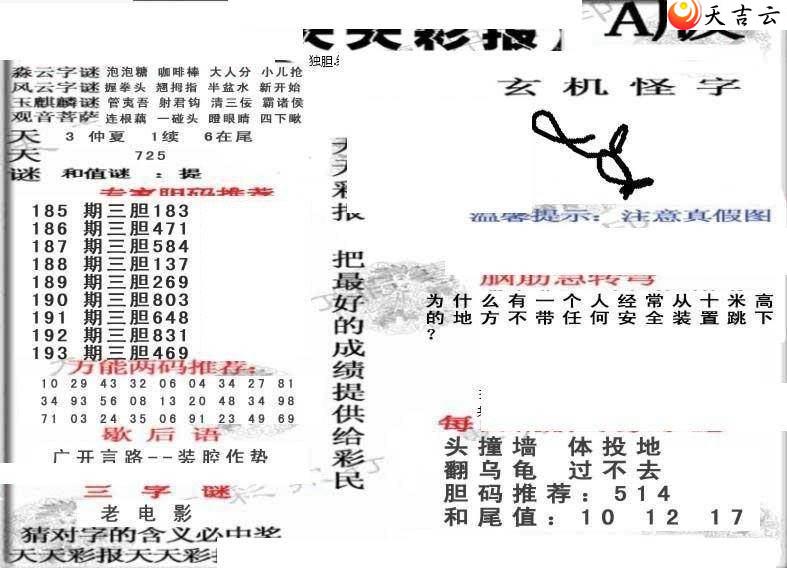 天吉云
天天彩报
独胆
森云字谜 泡泡糖 咖啡棒 大人分 小儿抢
风云字谜 握拳头 翘拇指 半盆水 新开始
玉麒麟谜 管夷吾 射君钩 清三佞 霸诸侯
观音菩萨 连根藕 一碰头 瞪眼睛 四下瞅
天 3 仲夏 1续 6在尾
天 725
谜 和值谜 : 提
专家胆码推荐
185 期三胆183
186 期三胆471
187 期三胆584
188 期三胆137
189 期三胆269
190 期三胆803
191 期三胆648
192 期三胆831
193 期三胆469
万能两码推荐:
10 29 43 32 06 04 34 27 81
34 93 56 08 13 20 48 34 98
71 03 24 35 06 91 23 49 69
歇后语
广开言路--装腔作势
三字谜
老电影
猜对字的含义必中奖
天天彩报天天彩报
天天彩报 把最好的成绩提供给彩民
玄机怪字
温馨提示: 注意真假图
脑筋急转弯
为什么有一个人经常从十米高
的地方不带任何安全装置跳下
?
每
头撞墙 体投地
翻乌龟 过不去
胆码推荐: 514
和尾值: 10 12 17